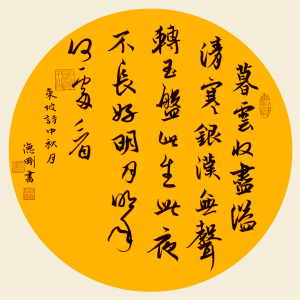 暮雲收盡溢
清寒銀漢無聲
轉玉盤此生此夜
不長好明月明年
何處看
東坡詩中秋月
德剛書